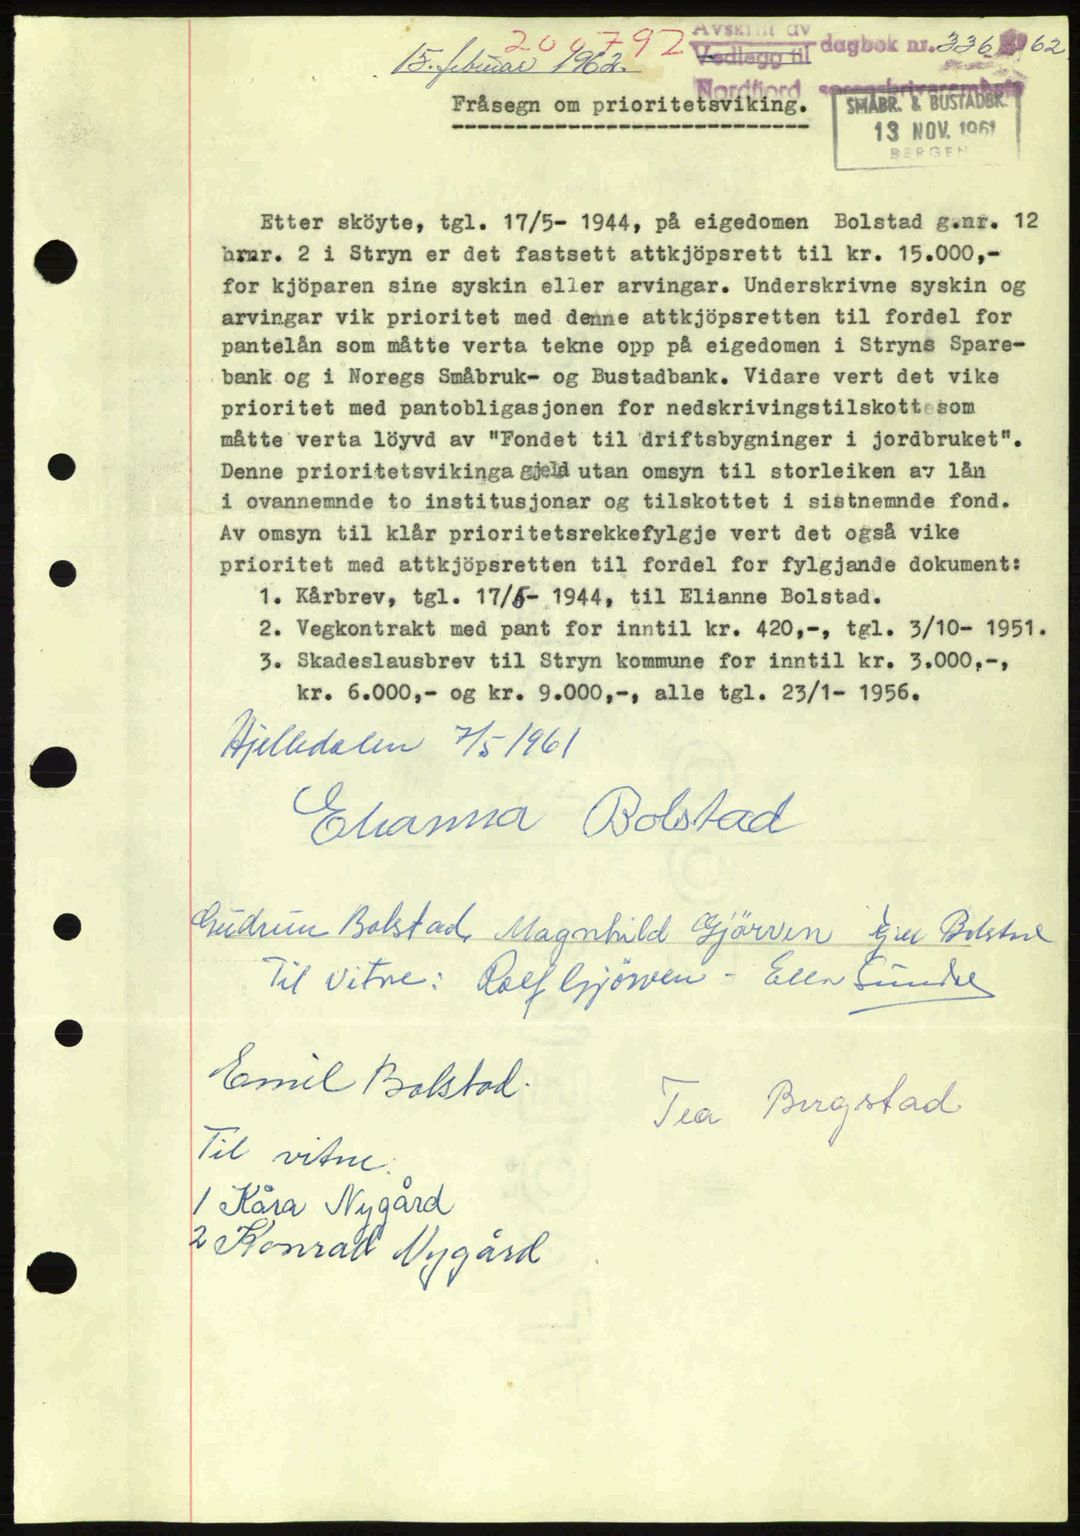 200792
Avskrift av
Vedlegg til dagbok nr. 336 62
15. februar 1962.
Nordfjord sorenskriverembete
Fråsegn om prioritetsviking.
SMÅBR. & BUSTADBK.
13 NOV. 1961
BERGEN
Etter sköyte, tgl. 17/5- 1944, på eigedomen Bolstad g.nr. 12
brnr. 2 i Stryn er det fastsett attkjöpsrett til kr. 15.000,-
for kjöparen sine syskin eller arvingar. Underskrivne syskin og
arvingar vik prioritet med denne attkjöpsretten til fordel for
pantelån som måtte verta tekne opp på eigedomen i Stryns Spare-
bank og i Noregs Småbruk- og Bustadbank. Vidare vert det vike
prioritet med pantobligasjonen for nedskrivingstilskott som
måtte verta löyvd av "Fondet til driftsbygninger i jordbruket".
Denne prioritetsvikinga gjeld utan omsyn til storleiken av lån
i ovannemnde to institusjonar og tilskottet i sistnemnde fond.
Av omsyn til klår prioritetsrekkefylgje vert det også vike
prioritet med attkjöpsretten til fordel for fylgjande dokument:
1. Kårbrev, tgl. 17/5- 1944, til Elianne Bolstad.
2. Vegkontrakt med pant for inntil kr. 420,-, tgl. 3/10- 1951.
3. Skadeslausbrev til Stryn kommune for inntil kr. 3.000,-,
kr. 6.000,- og kr. 9.000,-, alle tgl. 23/1- 1956.
Hjelledalen 7/5 1961
Elianna Bolstad
Gudrun Bolstad, Magnhild Gjörven Bolstad
Til vitne: Rolf Gjörven - Ellen Sunde
Emil Bolstad.
Tea Bergstad
Til vitne:
1 Kåra Nygård
2 Konrad Nygård